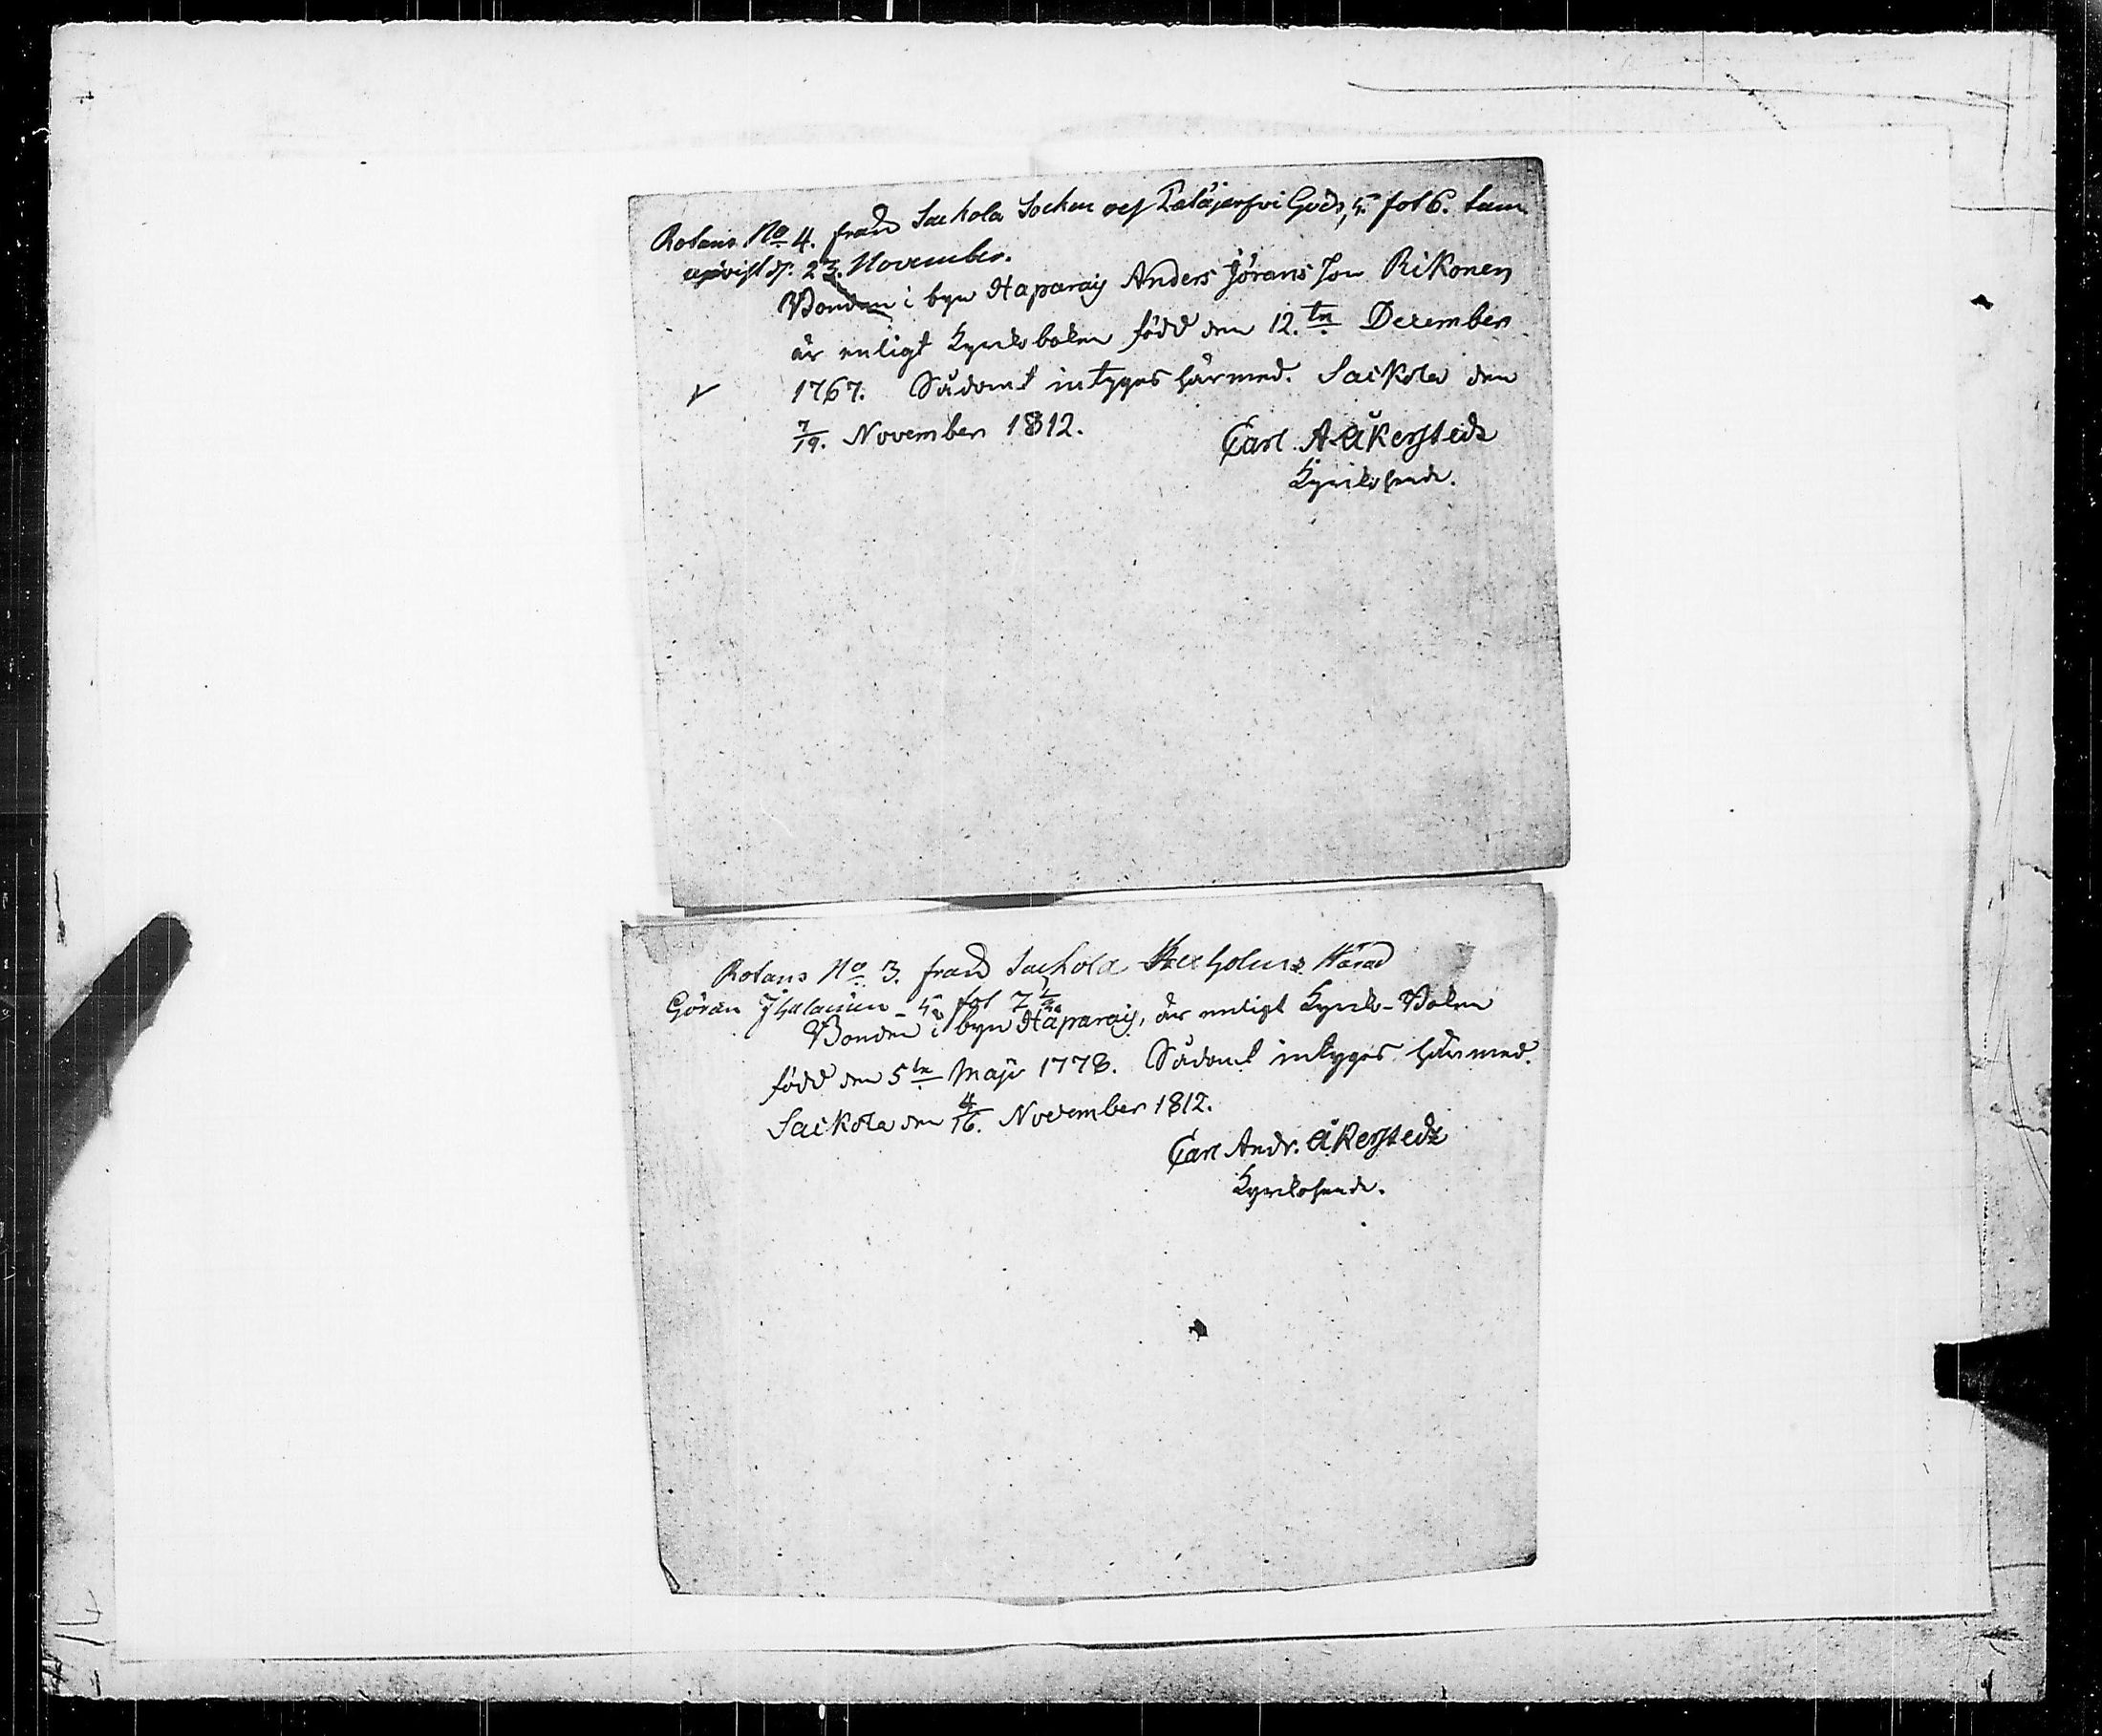 Rotans No 4. från Sackola Socken och Petäjerfvi Gods, 5 fot 6. tum
upvist d. 23. November.
Bonden i byn Haparaij Anders Jörans Son Rikonen
är enligt Kyrkoboken född den 12.te December
1767. Sådant intyges härmed. Saikola den
7/19. November 1812.
Carl A Åkerstedt
Kyrkoherde.
Rotans No 3. från Sackola Kexholms Härad
Göran Ihalainen - 5 fot 7 1/2
Bonden i byn Haparaij, är enligt Kyrko-Boken
född den 5te Maji 1778. Sådant intyges härmed.
Saikola den 4/16. November 1812.
Carl Andr. Åkerstedt
Kyrkoherde.